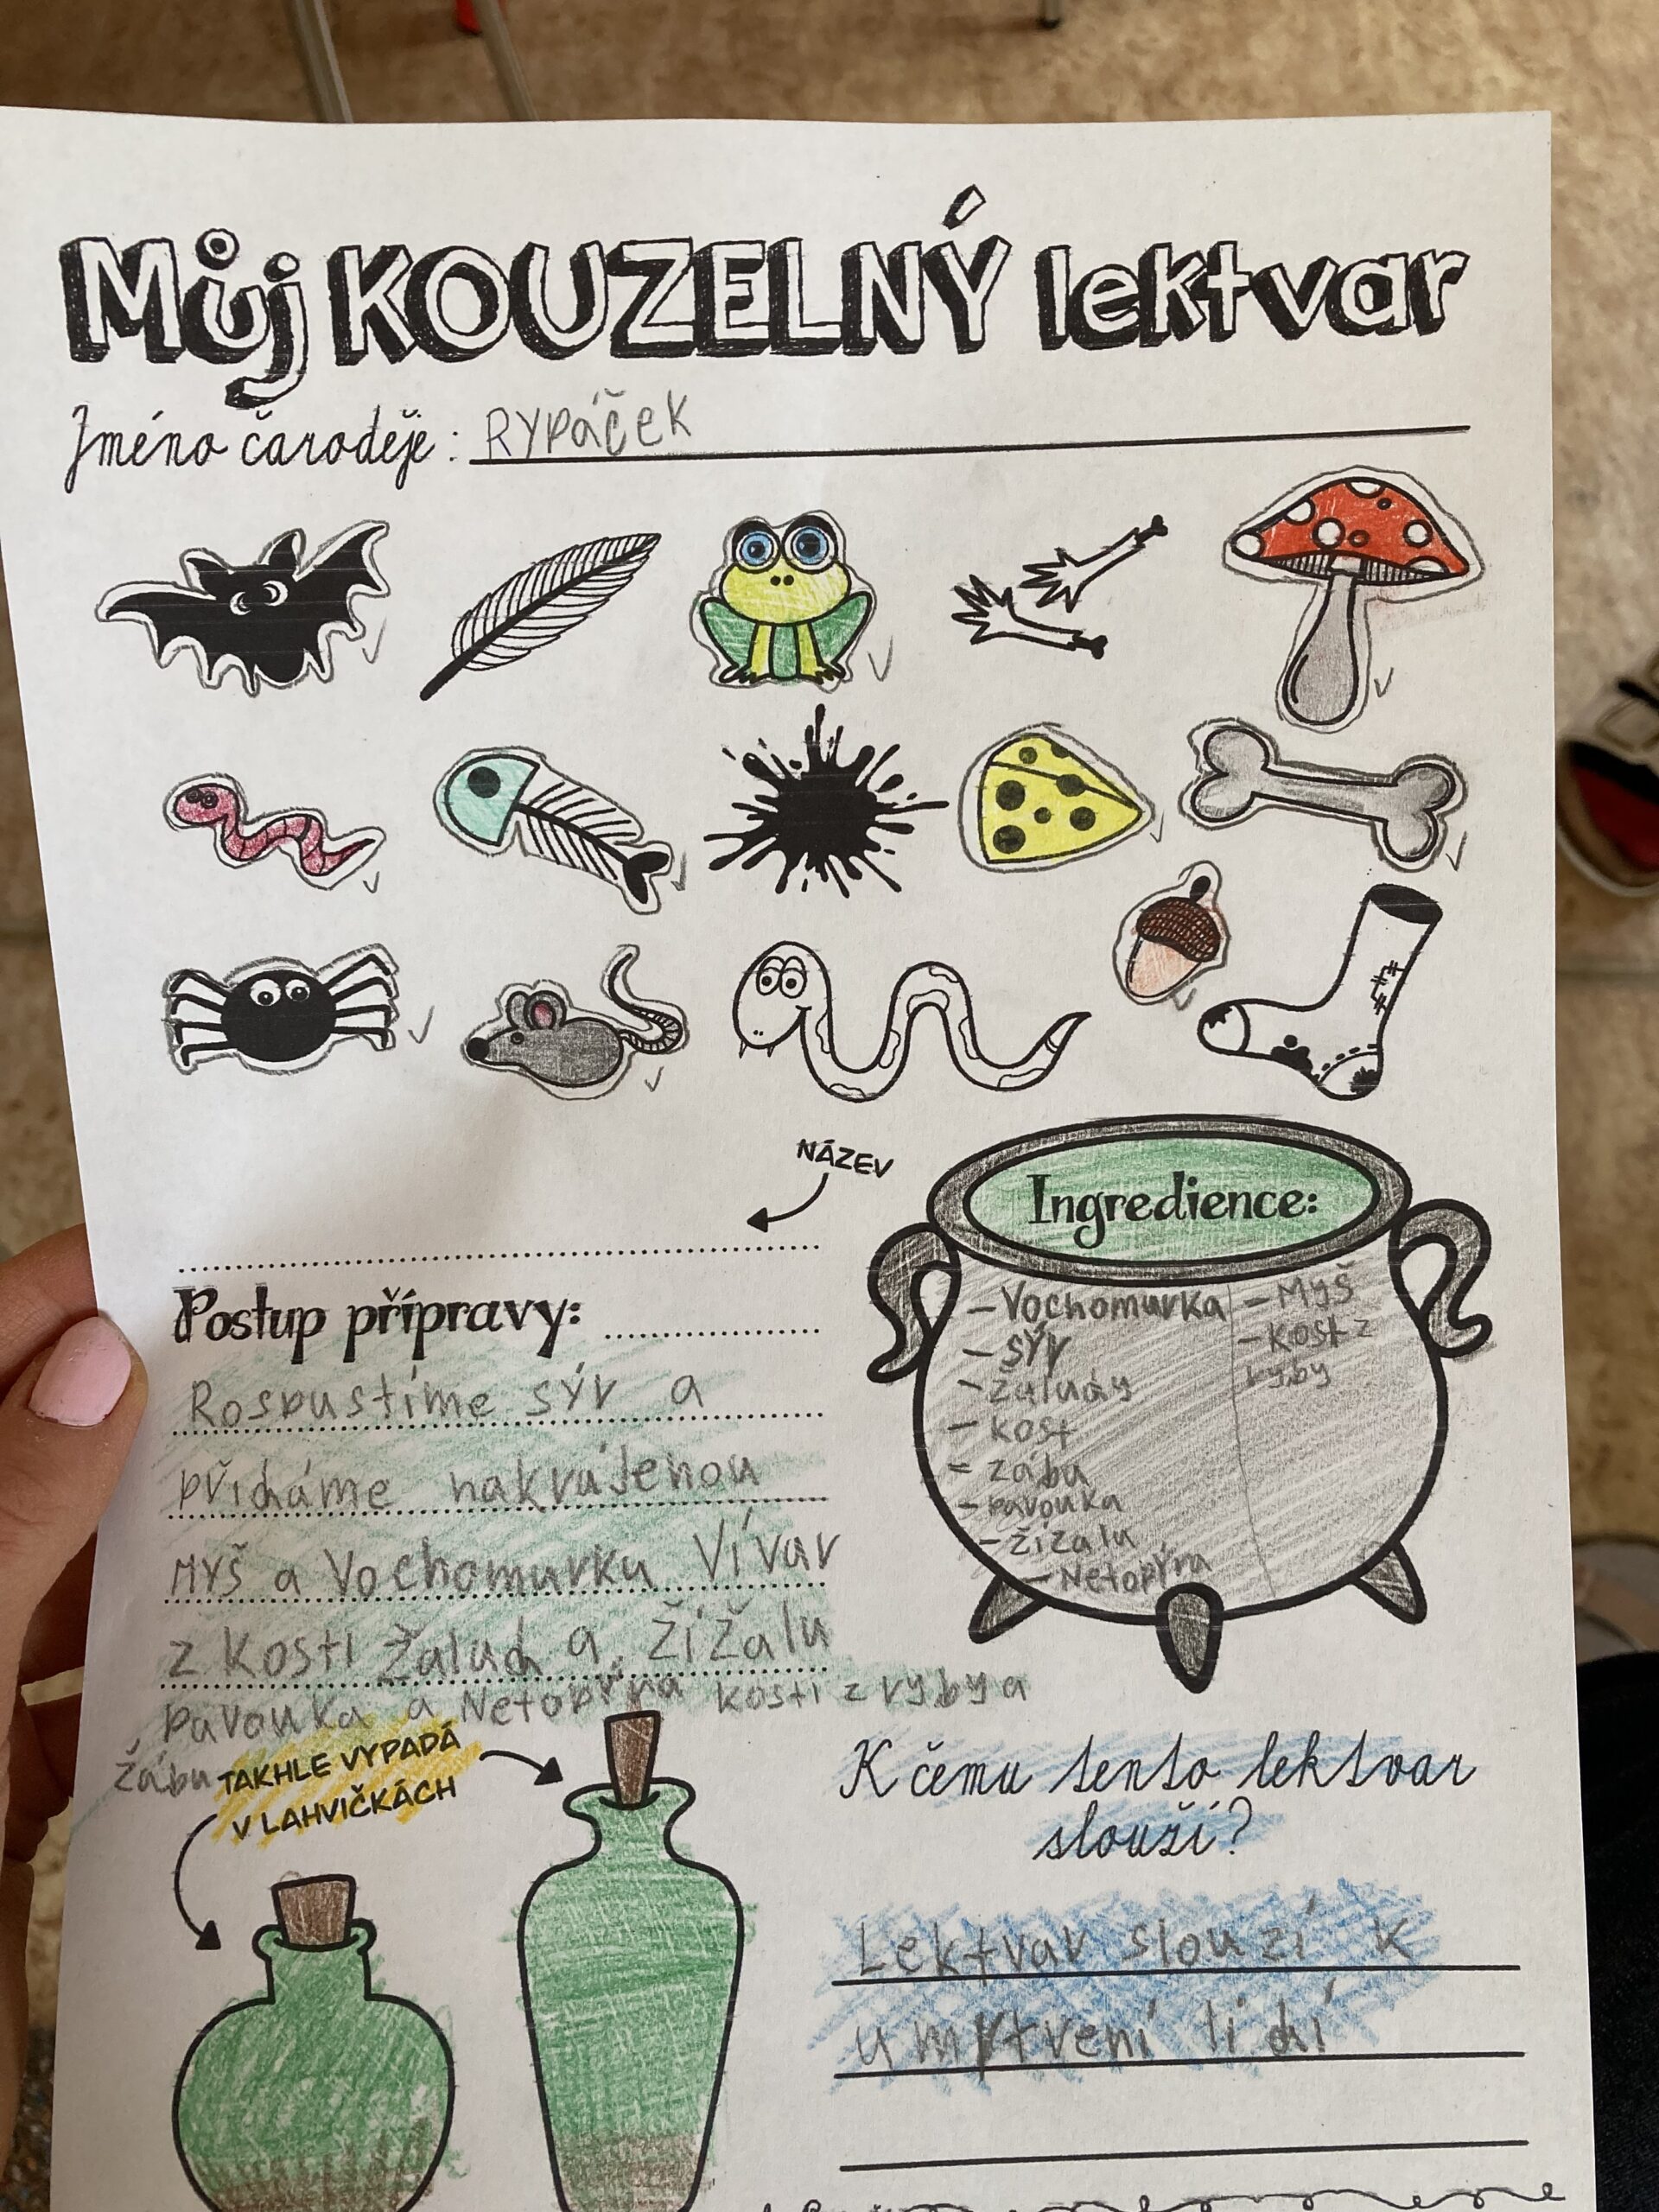 Můj KOUZELNÝ lektvar
Jméno čaroděje: RYPáček
NÁZEV
Postup přípravy:
Rospustíme sýr a
přidáme nakrájenou
MYŠ a Vochomurku Vívar
z Kosti Žalud a Žížalu
pavouka a Netopýra kosti z ryby a
žábu
Ingredience:
- Vochomurka
- sýr
- žaludy
- kost
- zábu
- pavouka
- žížalu
- Netopýra
- Myš
- kost z
ryby
TAKHLE VYPADÁ
V LAHVIČKÁCH
K čemu tento lektvar
slouží?
Lektvar slouzí k
umrtvení lidí